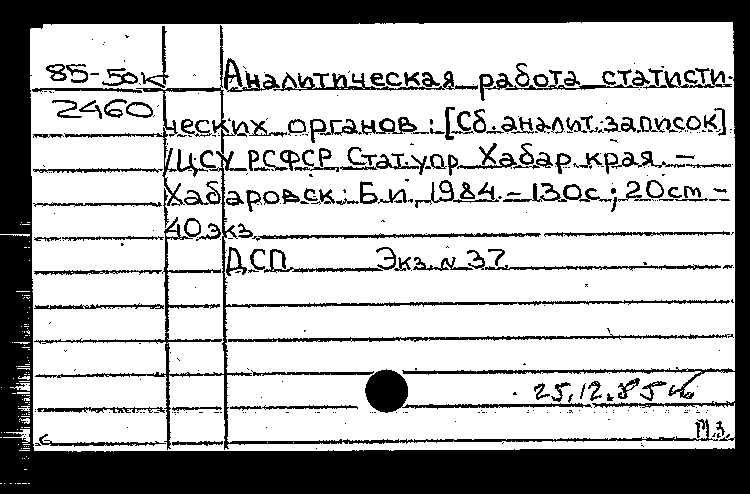 85-50к Аналитическая работа статисти-
2460 ческих органов : [Сб. аналит. записок]
/ЦСУ РСФСР, Стат. упр. Хабар. края. –
Хабаровск : Б.и., 1984. – 130с ; 20cm –
40 экз.
ДСП Экз. N 37.
25.12.85
М.З.